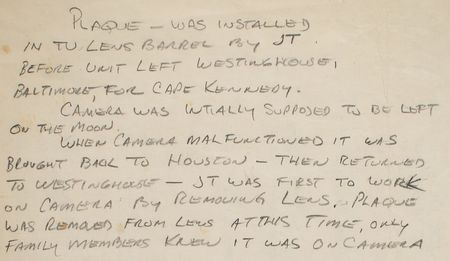 PLAQUE - WAS INSTALLED
IN TV LENS BARREL BY JT.
BEFORE UNIT LEFT WESTINGHOUSE,
BALTIMORE, FOR CAPE KENNEDY.
CAMERA WAS INTIALLY SUPPOSED TO BE LEFT
ON THE MOON.
WHEN CAMERA MALFUNCTIONED IT WAS
BROUGHT BACK TO HOUSTON - THEN RETURNED
TO WESTINGHOUSE - JT WAS FIRST TO WORK
ON CAMERA BY REMOVING LENS. PLAQUE
WAS REMOVED FROM LENS AT THIS TIME, ONLY
FAMILY MEMBERS KNEW IT WAS ON CAMERA